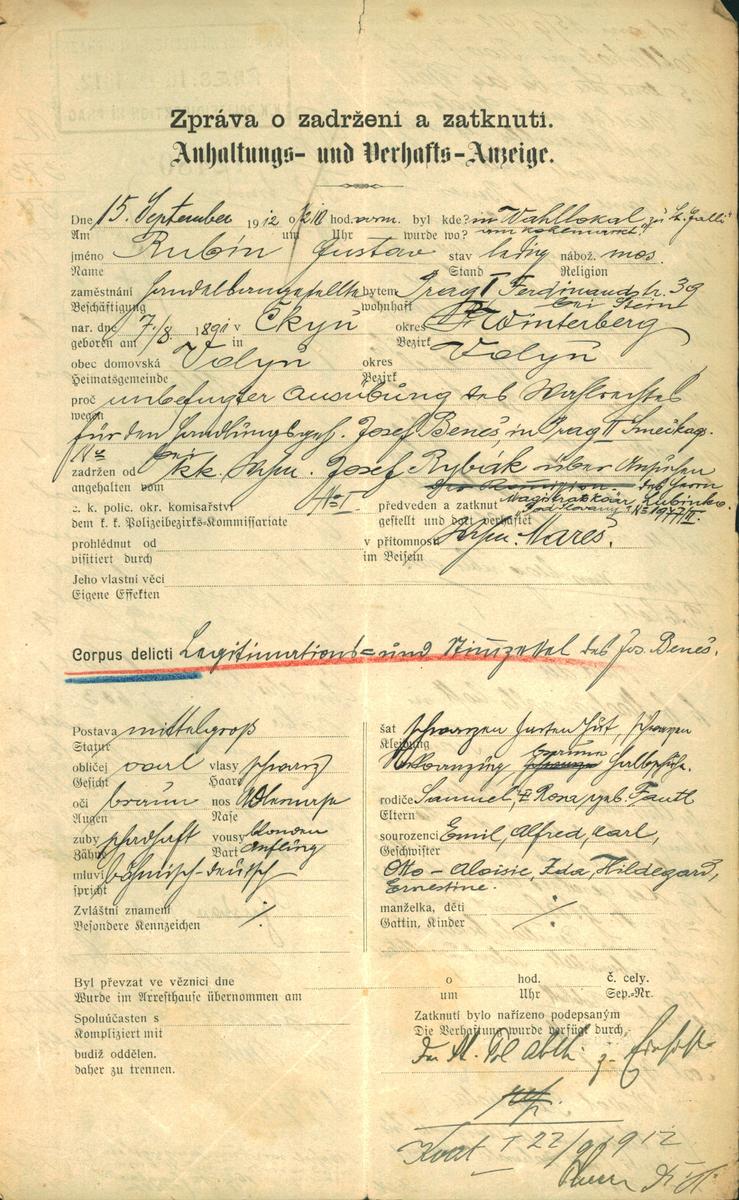 Zpráva o zadržení a zatknutí.
Anhaltungs- und Verhafts-Anzeige.
Dne 15. September 1912 o 1/2 10 hod. vorm. byl kde? im Wahllokal zu St. Galli
Am um Uhr wurde wo? am Kohlmarkt
jméno Rubin Gustav stav ledig nábož. mos.
Name Stand Religion
zaměstnání Handelsangestellte bytem Prag I Ferdinandstr. 39
Beschäftigung wohnhaft bei Stein
nar. dne 7/8. 1890 v Čkyň okres Winterberg
geboren am in Bezirk
obec domovská Volyň okres Volyň
Heimatsgemeinde Bezirk
proč unbefugter Ausübung des Wahlrechtes
wegen
für den Handlungsgeh. Josef Beneš, in Prag II Smečkag.
zadržen od kk. Josef Rybák über Ansuchen
angehalten vom des Herrn
c. k. polic. okr. komisařství No I předveden a zatknut
dem k. k. Polizeibezirks-Kommissariate gestellt und dort verhaftet
prohlédnut od v přítomnosti Mareš.
visitiert durch im Beisein
Jeho vlastní věci
Eigene Effekten
Corpus delicti Legitimations- und Stimmzettel des Jos. Beneš.
Postava mittelgroß
Statur
obličej oval vlasy schwarz
Gesicht Haare
oči braun nos Adlernase
Augen Nase
zuby schadhaft vousy blonden
Zähne Bart Anflug
mluví böhmisch-deutsch
spricht
Zvláštní znamení ./.
Besondere Kennzeichen
šat schwarzen harten Hut, schwarzen
Kleidung
braune Halbschuhe.
rodiče Samuel, Rosa geb. Fantl
Eltern
sourozenci Emil, Alfred, Karl,
Geschwister
Otto - Aloisie, Ida, Hildegard,
Ernestine.
manželka, děti ./.
Gattin, Kinder
Byl převzat ve věznici dne o hod. č. cely.
Wurde im Arresthause übernommen am um Uhr Sep.-Nr.
Spoluúčasten s
Kompliziert mit
budiž oddělen.
daher zu trennen.
Zatknutí bylo nařízeno podepsaným
Die Verhaftung wurde verfügt durch